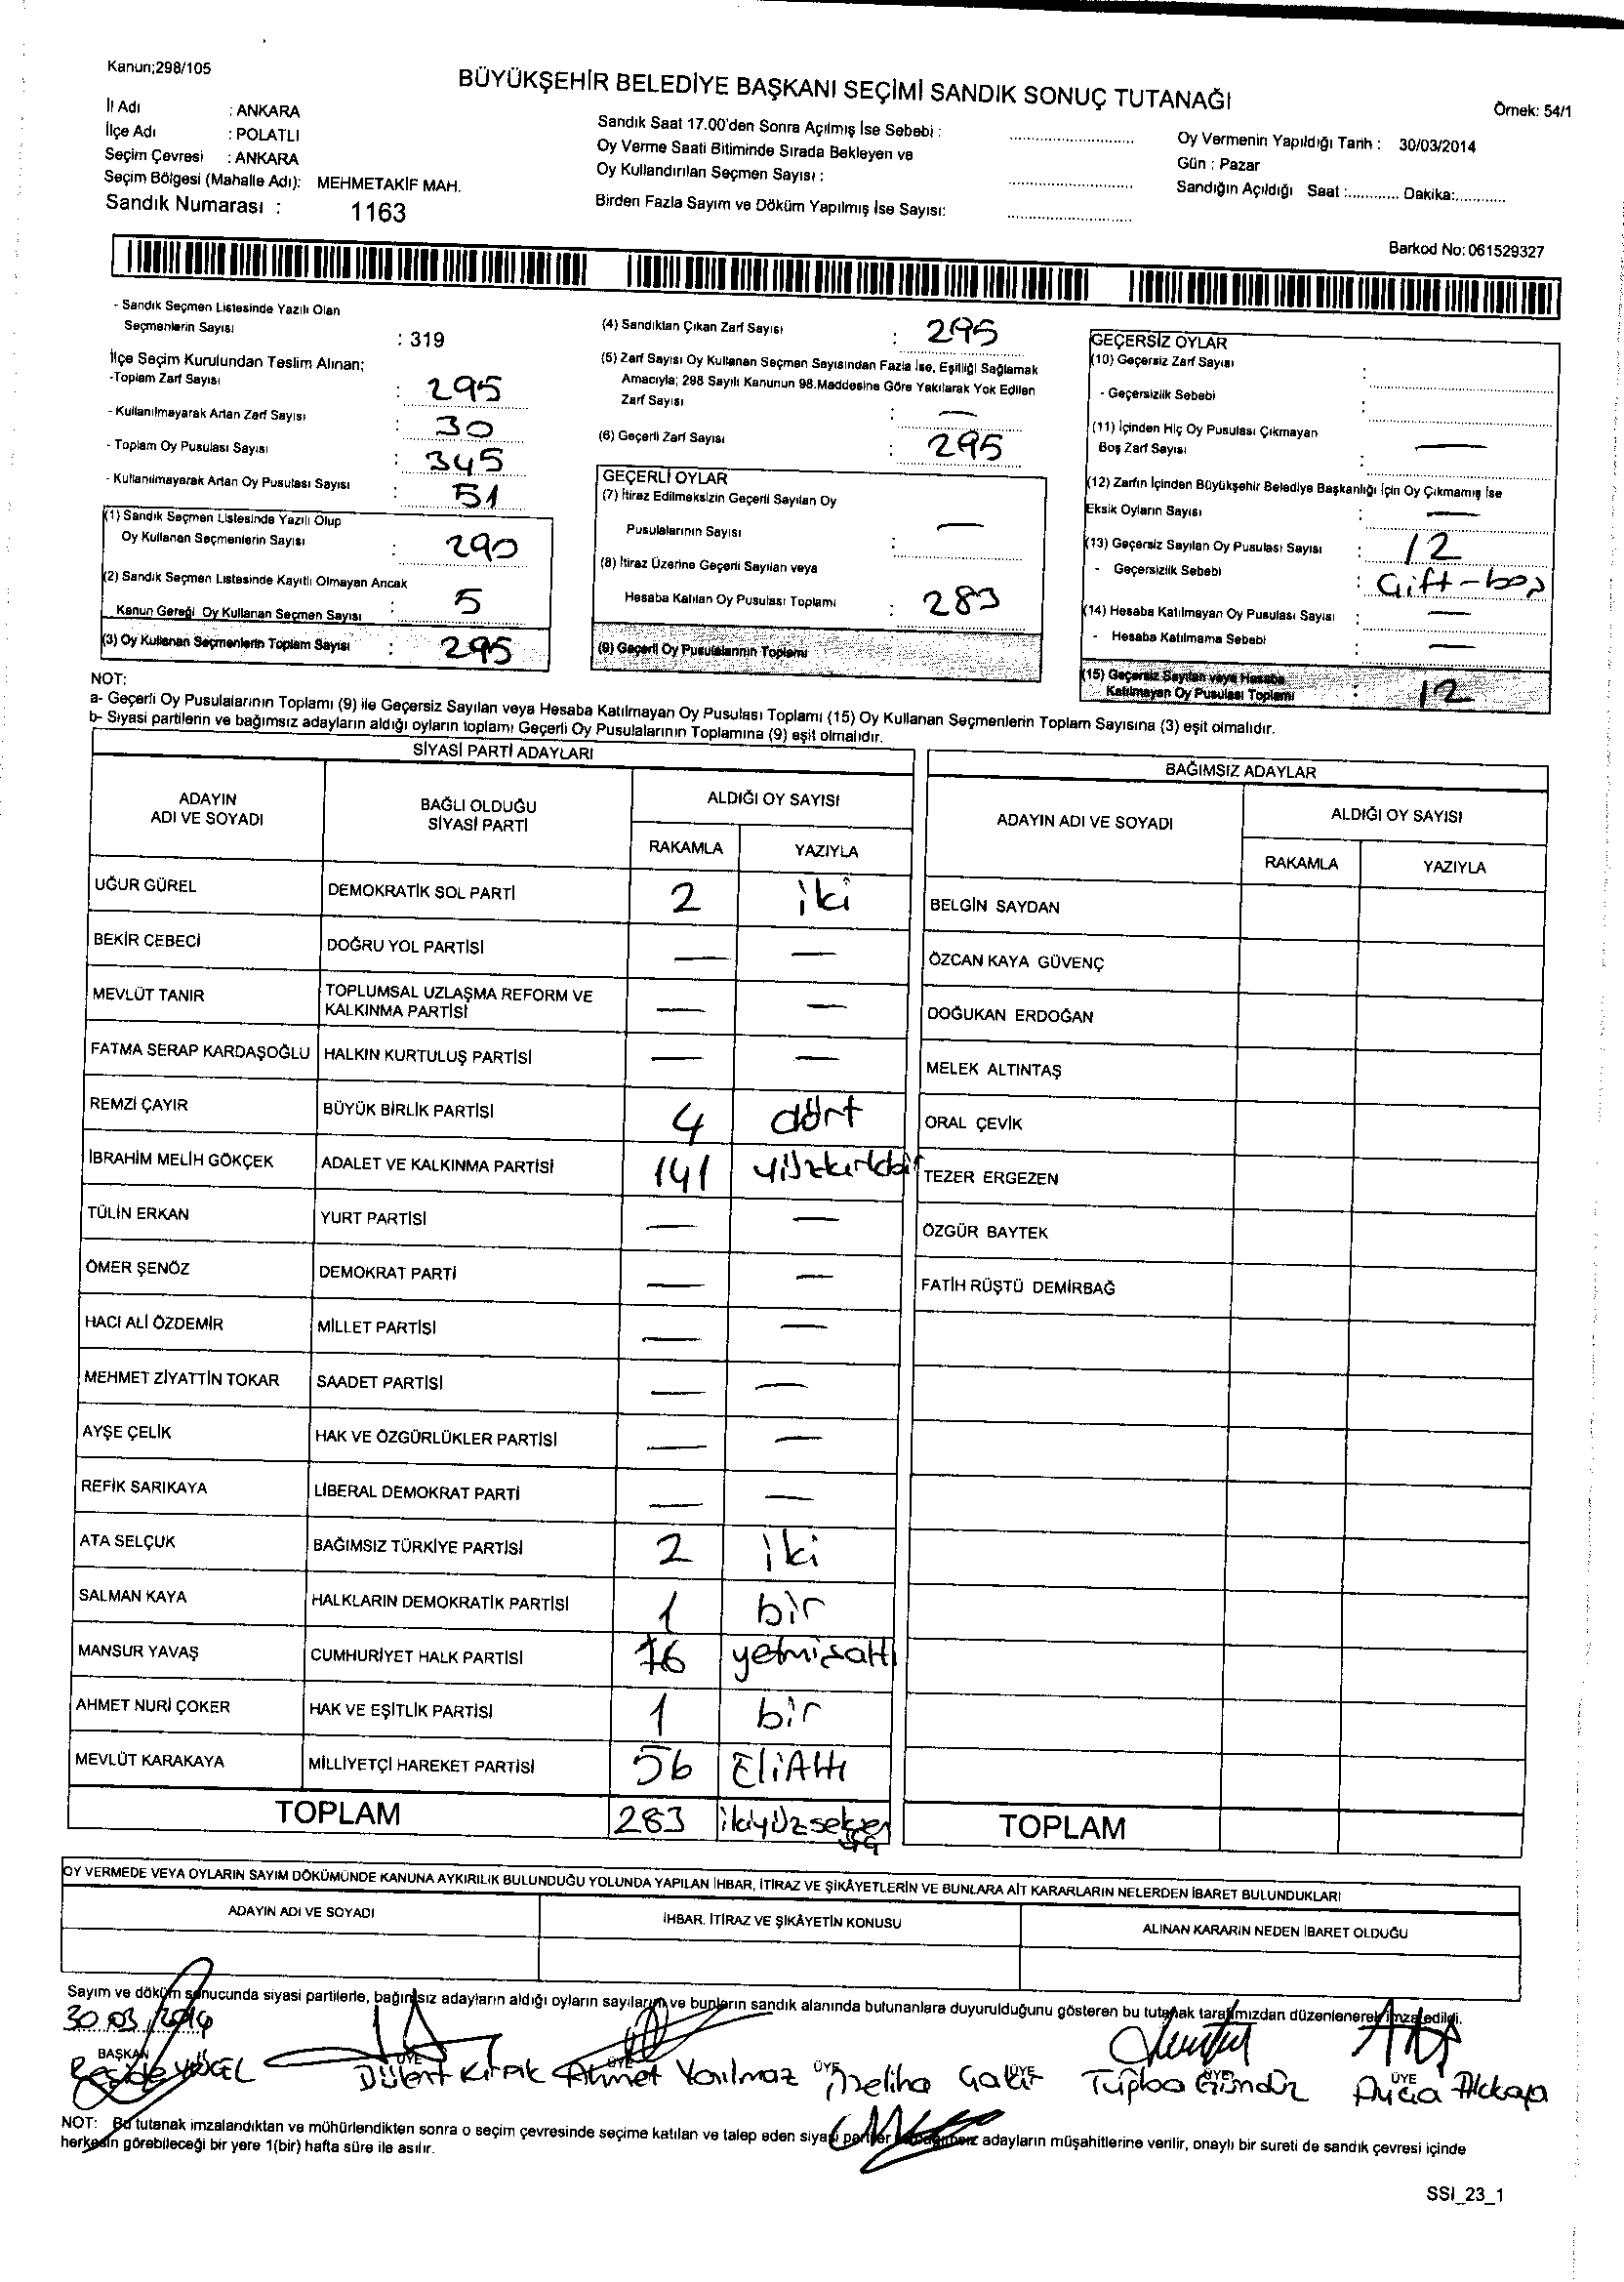 Kanun;298/105
BÜYÜKŞEHİR BELEDİYE BAŞKANI SEÇİMİ SANDIK SONUÇ TUTANAĞI
Örnek: 54/1
İl Adı : ANKARA
İlçe Adı : POLATLI
Seçim Çevresi : ANKARA
Seçim Bölgesi (Mahalle Adı): MEHMETAKİF MAH.
Sandık Numarası : 1163
Sandık Saat 17.00'den Sonra Açılmış İse Sebebi :
Oy Verme Saati Bitiminde Sırada Bekleyen ve
Oy Kullandırılan Seçmen Sayısı :
Birden Fazla Sayım ve Döküm Yapılmış İse Sayısı:
Oy Vermenin Yapıldığı Tarih : 30/03/2014
Gün : Pazar
Sandığın Açıldığı Saat :............ Dakika:............
Barkod No: 061529327
- Sandık Seçmen Listesinde Yazılı Olan
Seçmenlerin Sayısı : 319
İlçe Seçim Kurulundan Teslim Alınan;
-Toplam Zarf Sayısı : 295
- Kullanılmayarak Artan Zarf Sayısı : 30
- Toplam Oy Pusulası Sayısı : 345
- Kullanılmayarak Artan Oy Pusulası Sayısı : 51
(1) Sandık Seçmen Listesinde Yazılı Olup
Oy Kullanan Seçmenlerin Sayısı : 290
(2) Sandık Seçmen Listesinde Kayıtlı Olmayan Ancak
Kanun Gereği Oy Kullanan Seçmen Sayısı : 5
(3) Oy Kullanan Seçmenlerin Toplam Sayısı : 295
(4) Sandıktan Çıkan Zarf Sayısı : 295
(5) Zarf Sayısı Oy Kullanan Seçmen Sayısından Fazla İse, Eşitliği Sağlamak
Amacıyla; 298 Sayılı Kanunun 98.Maddesine Göre Yakılarak Yok Edilen
Zarf Sayısı : —
(6) Geçerli Zarf Sayısı : 295
GEÇERLİ OYLAR
(7) İtiraz Edilmeksizin Geçerli Sayılan Oy
Pusulalarının Sayısı : —
(8) İtiraz Üzerine Geçerli Sayılan veya
Hesaba Katılan Oy Pusulası Toplamı : 283
(9) Geçerli Oy Pusulalarının Toplamı
GEÇERSİZ OYLAR
(10) Geçersiz Zarf Sayısı :
- Geçersizlik Sebebi :
(11) İçinden Hiç Oy Pusulası Çıkmayan
Boş Zarf Sayısı : —
(12) Zarfın İçinden Büyükşehir Belediye Başkanlığı İçin Oy Çıkmamış İse
Eksik Oyların Sayısı : —
(13) Geçersiz Sayılan Oy Pusulası Sayısı : 12
- Geçersizlik Sebebi : Çift-boş
(14) Hesaba Katılmayan Oy Pusulası Sayısı : —
- Hesaba Katılmama Sebebi : —
(15) Geçersiz Sayılan veya Hesaba
Katılmayan Oy Pusulası Toplamı : 12
NOT:
a- Geçerli Oy Pusulalarının Toplamı (9) ile Geçersiz Sayılan veya Hesaba Katılmayan Oy Pusulası Toplamı (15) Oy Kullanan Seçmenlerin Toplam Sayısına (3) eşit olmalıdır.
b- Siyasi partilerin ve bağımsız adayların aldığı oyların toplamı Geçerli Oy Pusulalarının Toplamına (9) eşit olmalıdır.
SİYASİ PARTİ ADAYLARI
ADAYIN ADI VE SOYADI BAĞLI OLDUĞU SİYASİ PARTİ ALDIĞI OY SAYISI
RAKAMLA YAZIYLA
UĞUR GÜREL DEMOKRATİK SOL PARTİ 2 iki
BEKİR CEBECİ DOĞRU YOL PARTİSİ — —
MEVLÜT TANIR TOPLUMSAL UZLAŞMA REFORM VE KALKINMA PARTİSİ — —
FATMA SERAP KARDAŞOĞLU HALKIN KURTULUŞ PARTİSİ — —
REMZİ ÇAYIR BÜYÜK BİRLİK PARTİSİ 4 dört
İBRAHİM MELİH GÖKÇEK ADALET VE KALKINMA PARTİSİ 141 yüzkırkbir
TÜLİN ERKAN YURT PARTİSİ — —
ÖMER ŞENÖZ DEMOKRAT PARTİ — —
HACI ALİ ÖZDEMİR MİLLET PARTİSİ — —
MEHMET ZİYATTİN TOKAR SAADET PARTİSİ — —
AYŞE ÇELİK HAK VE ÖZGÜRLÜKLER PARTİSİ — —
REFİK SARIKAYA LİBERAL DEMOKRAT PARTİ — —
ATA SELÇUK BAĞIMSIZ TÜRKİYE PARTİSİ 2 iki
SALMAN KAYA HALKLARIN DEMOKRATİK PARTİSİ 1 bir
MANSUR YAVAŞ CUMHURİYET HALK PARTİSİ 76 yetmişaltı
AHMET NURİ ÇOKER HAK VE EŞİTLİK PARTİSİ 1 bir
MEVLÜT KARAKAYA MİLLİYETÇİ HAREKET PARTİSİ 56 EliAltı
TOPLAM 283 ikiyüzseksen üç
BAĞIMSIZ ADAYLAR
ADAYIN ADI VE SOYADI ALDIĞI OY SAYISI
RAKAMLA YAZIYLA
BELGİN SAYDAN
ÖZCAN KAYA GÜVENÇ
DOĞUKAN ERDOĞAN
MELEK ALTINTAŞ
ORAL ÇEVİK
TEZER ERGEZEN
ÖZGÜR BAYTEK
FATİH RÜŞTÜ DEMİRBAĞ
TOPLAM
OY VERMEDE VEYA OYLARIN SAYIM DÖKÜMÜNDE KANUNA AYKIRILIK BULUNDUĞU YOLUNDA YAPILAN İHBAR, İTİRAZ VE ŞİKÂYETLERİN VE BUNLARA AİT KARARLARIN NELERDEN İBARET BULUNDUKLARI
ADAYIN ADI VE SOYADI İHBAR, İTİRAZ VE ŞİKÂYETİN KONUSU ALINAN KARARIN NEDEN İBARET OLDUĞU
Sayım ve döküm sonucunda siyasi partilerle, bağımsız adayların aldığı oyların sayılarını ve bunların sandık alanında bulunanlara duyurulduğunu gösteren bu tutanak tarafımızdan düzenlenerek imza edildi.
30.03.2014
BAŞKAN ÜYE ÜYE ÜYE ÜYE ÜYE ÜYE
Bülent Kırık Ahmet Yarılmaz Meliha Tuğba Gündüz Akkaya
NOT: Bu tutanak imzalandıktan ve mühürlendikten sonra o seçim çevresinde seçime katılan ve talep eden siyasi partiler bağımsız adayların müşahitlerine verilir, onaylı bir sureti de sandık çevresi içinde
herkesin görebileceği bir yere 1(bir) hafta süre ile asılır.
SSI_23_1